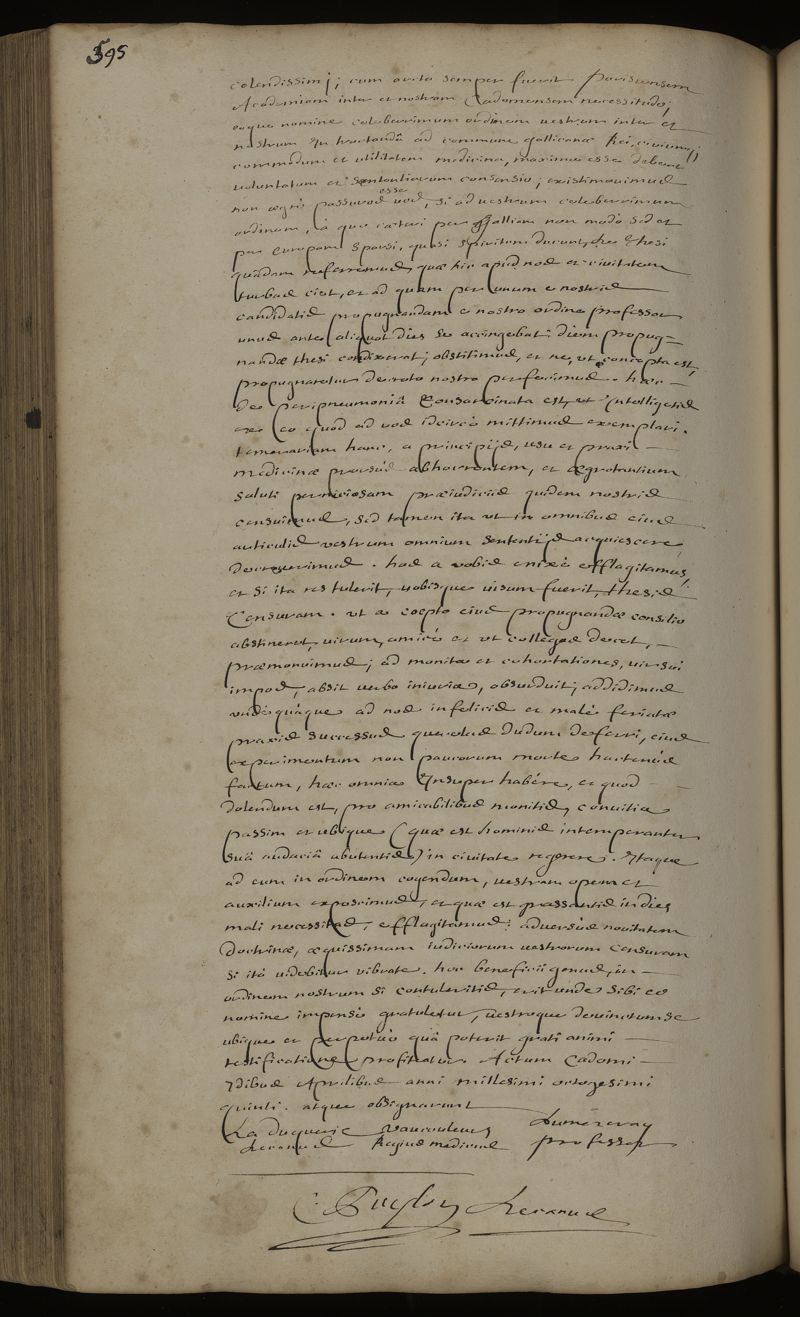 595
colendissimj; cum arcta semper fuerit Parisiensem
Academiam inter et nostram Cadomensem necessitudo;
eoque nomine celeberrimum ordinem vestrum inter et
nostrum in tractandâ ad commune gallicanæ Rei, civium
commodum et utilitatem medicina, maximus esse debeat
voluntatum et sententiarum consensus; existimavimus
non ægre passuros esse vos, si ad vestrum celeberrimum
ordinem, à quo cæteri per Galliam non modo sed et
per Europam sparsi, quasi spiritum ducunt, de thesi
quâdam referremus, quæ hic apud nos et civitatem
turbas ciet, et ad quam per unum e nostris
candidatis propugnandam e nostro ordine professor
unus ante aliquot dies se accingebat: diem propug=
nandæ thesi condixerat; obstitimus, et ne, ut concepta est,
propugnaretur decreto nostro perfecimus. hæc
de peripneumoniâ Consarcinata est, ut intelligetis
ex eo quod ad vos ideireò mittimus exemplari.
temerariam hanc, a principijs, usu et praxi
medicinæ prorsùs abhorrentem, et ægrotantium
saluti perniciosam præiudiciis quidem nostris
censuimus, sed tamen ita ut in omnibus eius
articulis vestrum omnium sententijs acquiescere
decreverimus. has a vobis enixè efflagitamus,
et si ita res tulerit, vobisque visum fuerit, thesis
Censuram. ut a coepto eius propugnandæ consilio
abstineret, virum, amicè et ut collegas decet,
præmonuimus; ad monita et cohortationes, vir sui
impos, absit verbo iniuria, obsurduit; addidimus
undequàque ad nos infelicis et malè feriatæ
praxis successus querelas dudum deferri, eius
experimentum non paucorum morte hactenùs
factum, hæc omnia insuper habere, et quod
dolendum est, pro amicabilibus monitis, convitia
passim et ubique (quæ est hominis intemperanter
suâ audaciâ abutentis) in civitate regerere. Itaque
ad eum in ordinem cogendum, vestram opem et
auxilium exposcimus, et quæ est grassantis indies
mali necessitas, efflagitamus: adversùs novitatem
doctrinæ, æquissimam iudiciorum vestrorum Censuram
si ità videbitur vibrate. hoc beneficii genus, in
ordinem nostrum si contuleritis, erit unde sibi eo
nomine impensè gratuletur, vestroque devinctum se
ubique et perpetuò quâ poterit grati animi
testificatione profiteatur. Actum Cadomi
Idibus Aprilibus anni millesimi octogesimi
quinti. atque obsignarunt
La ducquerie Vaucouleurs
Decanus Regius medicus professor
C. Puylon Decanus